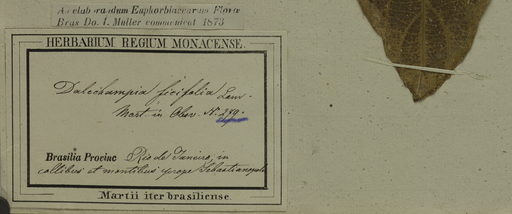 Ad elaborandum Euphorbiacearum Florae
Bras Do. I. Müller communicat 1873
HERBARIUM REGIUM MONACENSE.
Dalechampia ficifolia Lam.
Mart. in Obsv. N. 279.
Brasilia Provinc Rio de Janeiro, in
collibus et montibus prope Sebastianopoli
Martii iter brasiliense.